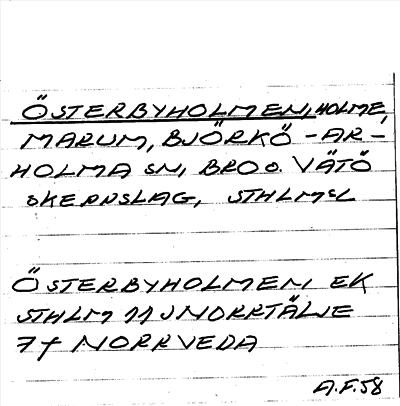 ÖSTERBYHOLMEN, HOLME,
MARUM, BJÖRKÖ-AR-
HOLMA SN, BRO O. VÄTÖ
SKEPPSLAG, STHLMSL
ÖSTERBYHOLMEN EK
STHLM 11J NORRTÄLJE
7f NORRVEDA
A.F. 58